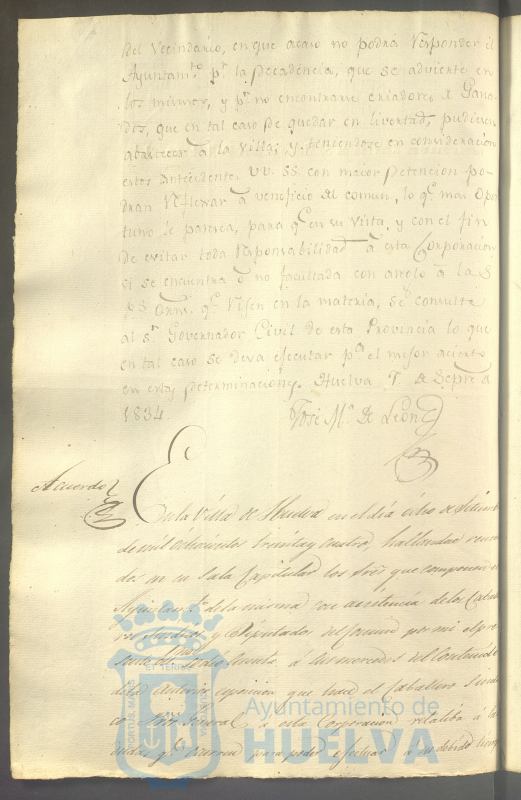 del Vecindario, en que acaso no podrá responder el
Ayuntamto pr la decadencia, que se advierte en
los mismos, y pr no encontrarse criadores de Gana
dos, que en tal caso de quedar en livertad, pudiesen
abastecer á la villa; y teniendose en consideracion
estos antecedentes VV. SS. con maior detencion po
dran reflexar á veneficio del comun, lo qe mas opor
tuno le paresca, para qe en su vista, y con el fin
de evitar toda responsabilidad á esta Corporacion
si se encuentra ó no facultada con arreglo á las
Orns. qe rijen en la materia, se consulte
al Sr Governador Civil de esta Provincia lo que
en tal caso se deva ejecutar pa el mejor acierto
en estas determinaciones. Huelva de Sepre de
1834.
José Ma de Leon
Acuerdo
En la Villa de Huelva en el dia ocho de Setiem
de mil ochocientos treinta y cuatro, hallandose reuni
dos en su Sala Capitular los Sres que componen el
Ayuntamto de la misma con asistencia de los Caballe
ros Sindico y Diputados del Comun por mi el pre
sente Srio se dió cuenta á sus mercedes del contenido
de la anterior esposicion que hace el Caballero Sindi
co Pror General á esta Corporacion relativa á las
dudas qe ocurren para poder efectuar á su debido tiempo
PORTUS MARIS ET TERRAE CUSTODIA
Ayuntamiento de
HUELVA